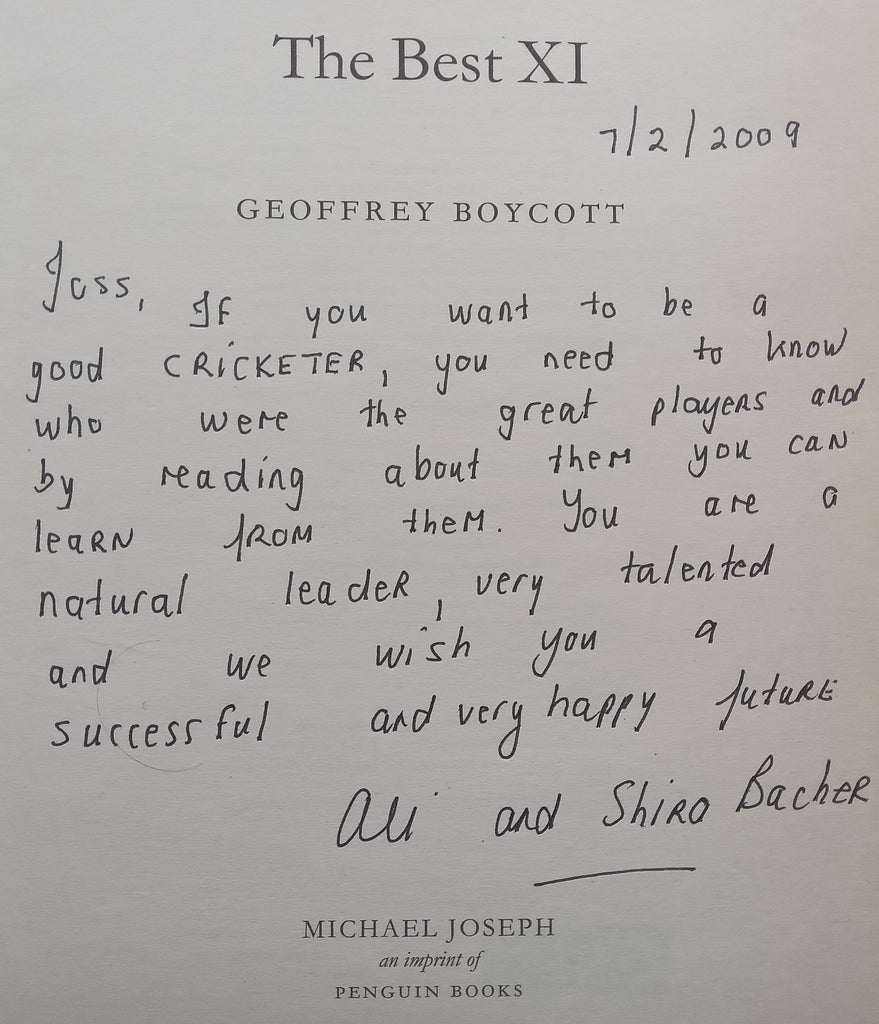 The Best XI
7/2/2009
GEOFFREY BOYCOTT
Joss,
If you want to be a
good CRICKETER, you need to know
who were the great players and
by reading about them you can
learn from them. You are a
natural leader, very talented
and we wish you a
successful and very happy future
Ali and Shira Bacher
MICHAEL JOSEPH
an imprint of
PENGUIN BOOKS